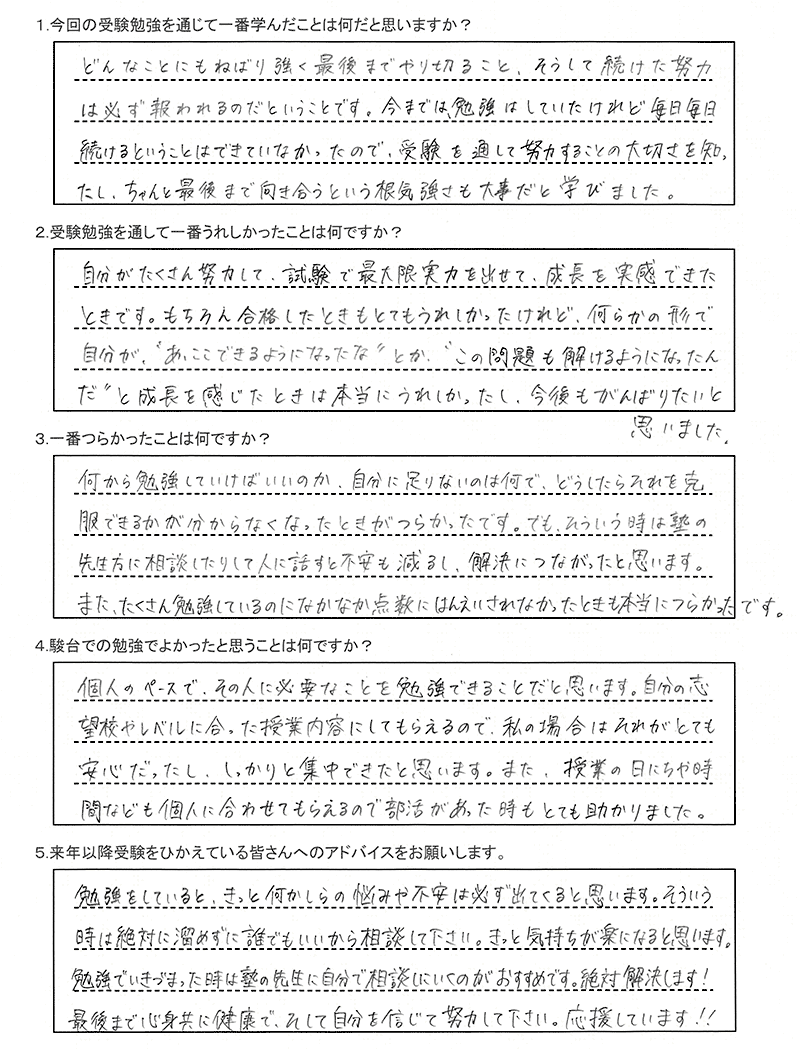 1.今回の受験勉強を通じて一番学んだことは何だと思いますか?
どんなことにもねばり強く最後までやり切ること、そうして続けた努力
は必ず報われるのだということです。今までは、勉強はしていたけれど毎日毎日
続けるということはできていなかったので、受験を通して努力することの大切さを知っ
たし、ちゃんと最後まで向き合うという根気強さも大事だと学びました。
2.受験勉強を通して一番うれしかったことは何ですか?
自分がたくさん努力して、試験で最大限実力を出せて、成長を実感できた
ときです。もちろん合格したときもとてもうれしかったけれど、何らかの形で
自分が、〝あ、ここできるようになったな〟とか、〝この問題も解けるようになったん
だ〟と成長を感じたときは本当にうれしかったし、今後もがんばりたいと
思いました。
3.一番つらかったことは何ですか?
何から勉強していけばいいのか、自分に足りないのは何で、どうしたらそれを克
服できるかが分からなくなったときがつらかったです。でも、そういう時は塾の
先生方に相談したりして人に話すと不安も減るし、解決につながったと思います。
また、たくさん勉強しているのになかなか点数にはんえいされなかったときも本当につらかったです。
4.駿台での勉強でよかったと思うことは何ですか?
個人のペースで、その人に必要なことを勉強できることだと思います。自分の志
望校やレベルに合った授業内容にしてもらえるので、私の場合はそれがとても
安心だったし、しっかりと集中できたと思います。また、授業の日にちや時
間なども個人に合わせてもらえるので部活があった時もとても助かりました。
5.来年以降受験をひかえている皆さんへのアドバイスをお願いします。
勉強をしていると、きっと何かしらの悩みや不安は必ず出てくると思います。そういう
時は絶対に溜めずに誰でもいいから相談して下さい。きっと気持ちが楽になると思います。
勉強でいきづまった時は塾の先生に自分で相談しにいくのがおすすめです。絶対解決します!
最後まで心身共に健康で、そして自分を信じて努力して下さい。応援しています!!